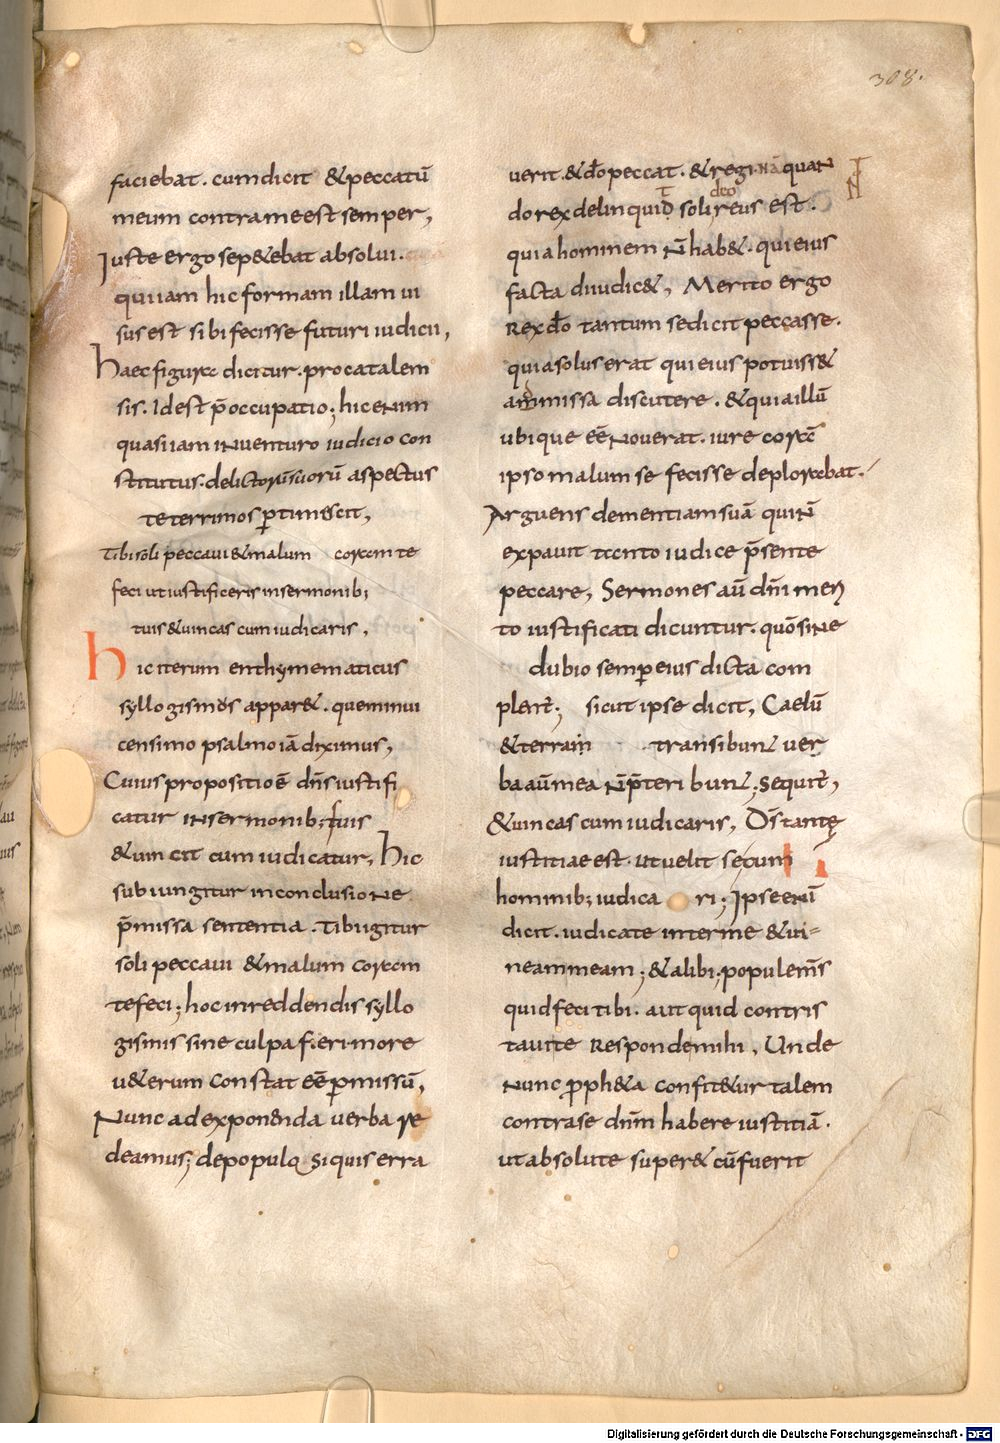 308.
faciebat. cum dicit &peccatū
meum contra me est semper,
Iuste ergo sep&ebat absolui.
qui iam hic formam illam ui
sus est sibi fecisse futuri iudicii,
Haec figura dicitur. procatalem
sis. Idest p̄occupatio; hic enim
quasi iam inuenturo iudicio con
stitutus. delictorū suorū aspectus
teterrimos ꝑtimescit,
Tibi soli peccaui &malum coram te
feci ut iustificeris in sermonib;
tuis &uincas cum iudicaris,
Hic iterum enthymematicus
syllogismos appar&. quem in ui
censimo psalmo iā diximus,
Cuius propositio ē dn̄s iustifi
catur in sermonib; suis
&uincit cum iudicatur, Hic
subiungitur in conclusione
p̄missa sententia. Tibi igitur
soli peccaui &malum coram
te feci; hoc in reddendis syllo
gismis sine culpa fieri more
u&erum constat eē ꝑmissū,
Nunc ad exponenda uerba re
deamus; de populo si quis erra
uerit. &dō peccat. &regi. Nā quan
do rex delinquit soli deo reus est.
quia hominem n̄ hab&. qui eius
facta diiudic&, Merito ergo
Rex dō tantum se dicit peccasse.
quia solus erat qui eius potuiss&
admissa discutere. &quia illū
ubique eē nouerat. iure corā
ipso malum se fecisse deplorabat.
Arguens dementiam suā qui n̄
expauit tanto iudice p̄sente
peccare, Sermones aū dn̄i meri
to iustificati dicuntur. quō sine
dubio semꝑ eius dicta com
plent; sicut ipse dicit, Caelū
&terram transibunt uer
ba aūmea n̄p̄teribunt; sequit̄,
&uincas cum iudicaris, Dn̄s tantę
iustitiae est. ut uelit secum
hominib; iudicari; Ipse enī
dicit. iudicate inter me &ui=
neam meam; &alibi; popule m̄s
quid feci tibi. aut quid contris
taui te Responde mihi, Unde
Nunc ꝓph&a confit&ur talem
contra se dn̄m habere iustitiā.
ut absolute super& cū fuerit
Digitalisierung gefördert durch die Deutsche Forschungsgemeinschaft - DFG